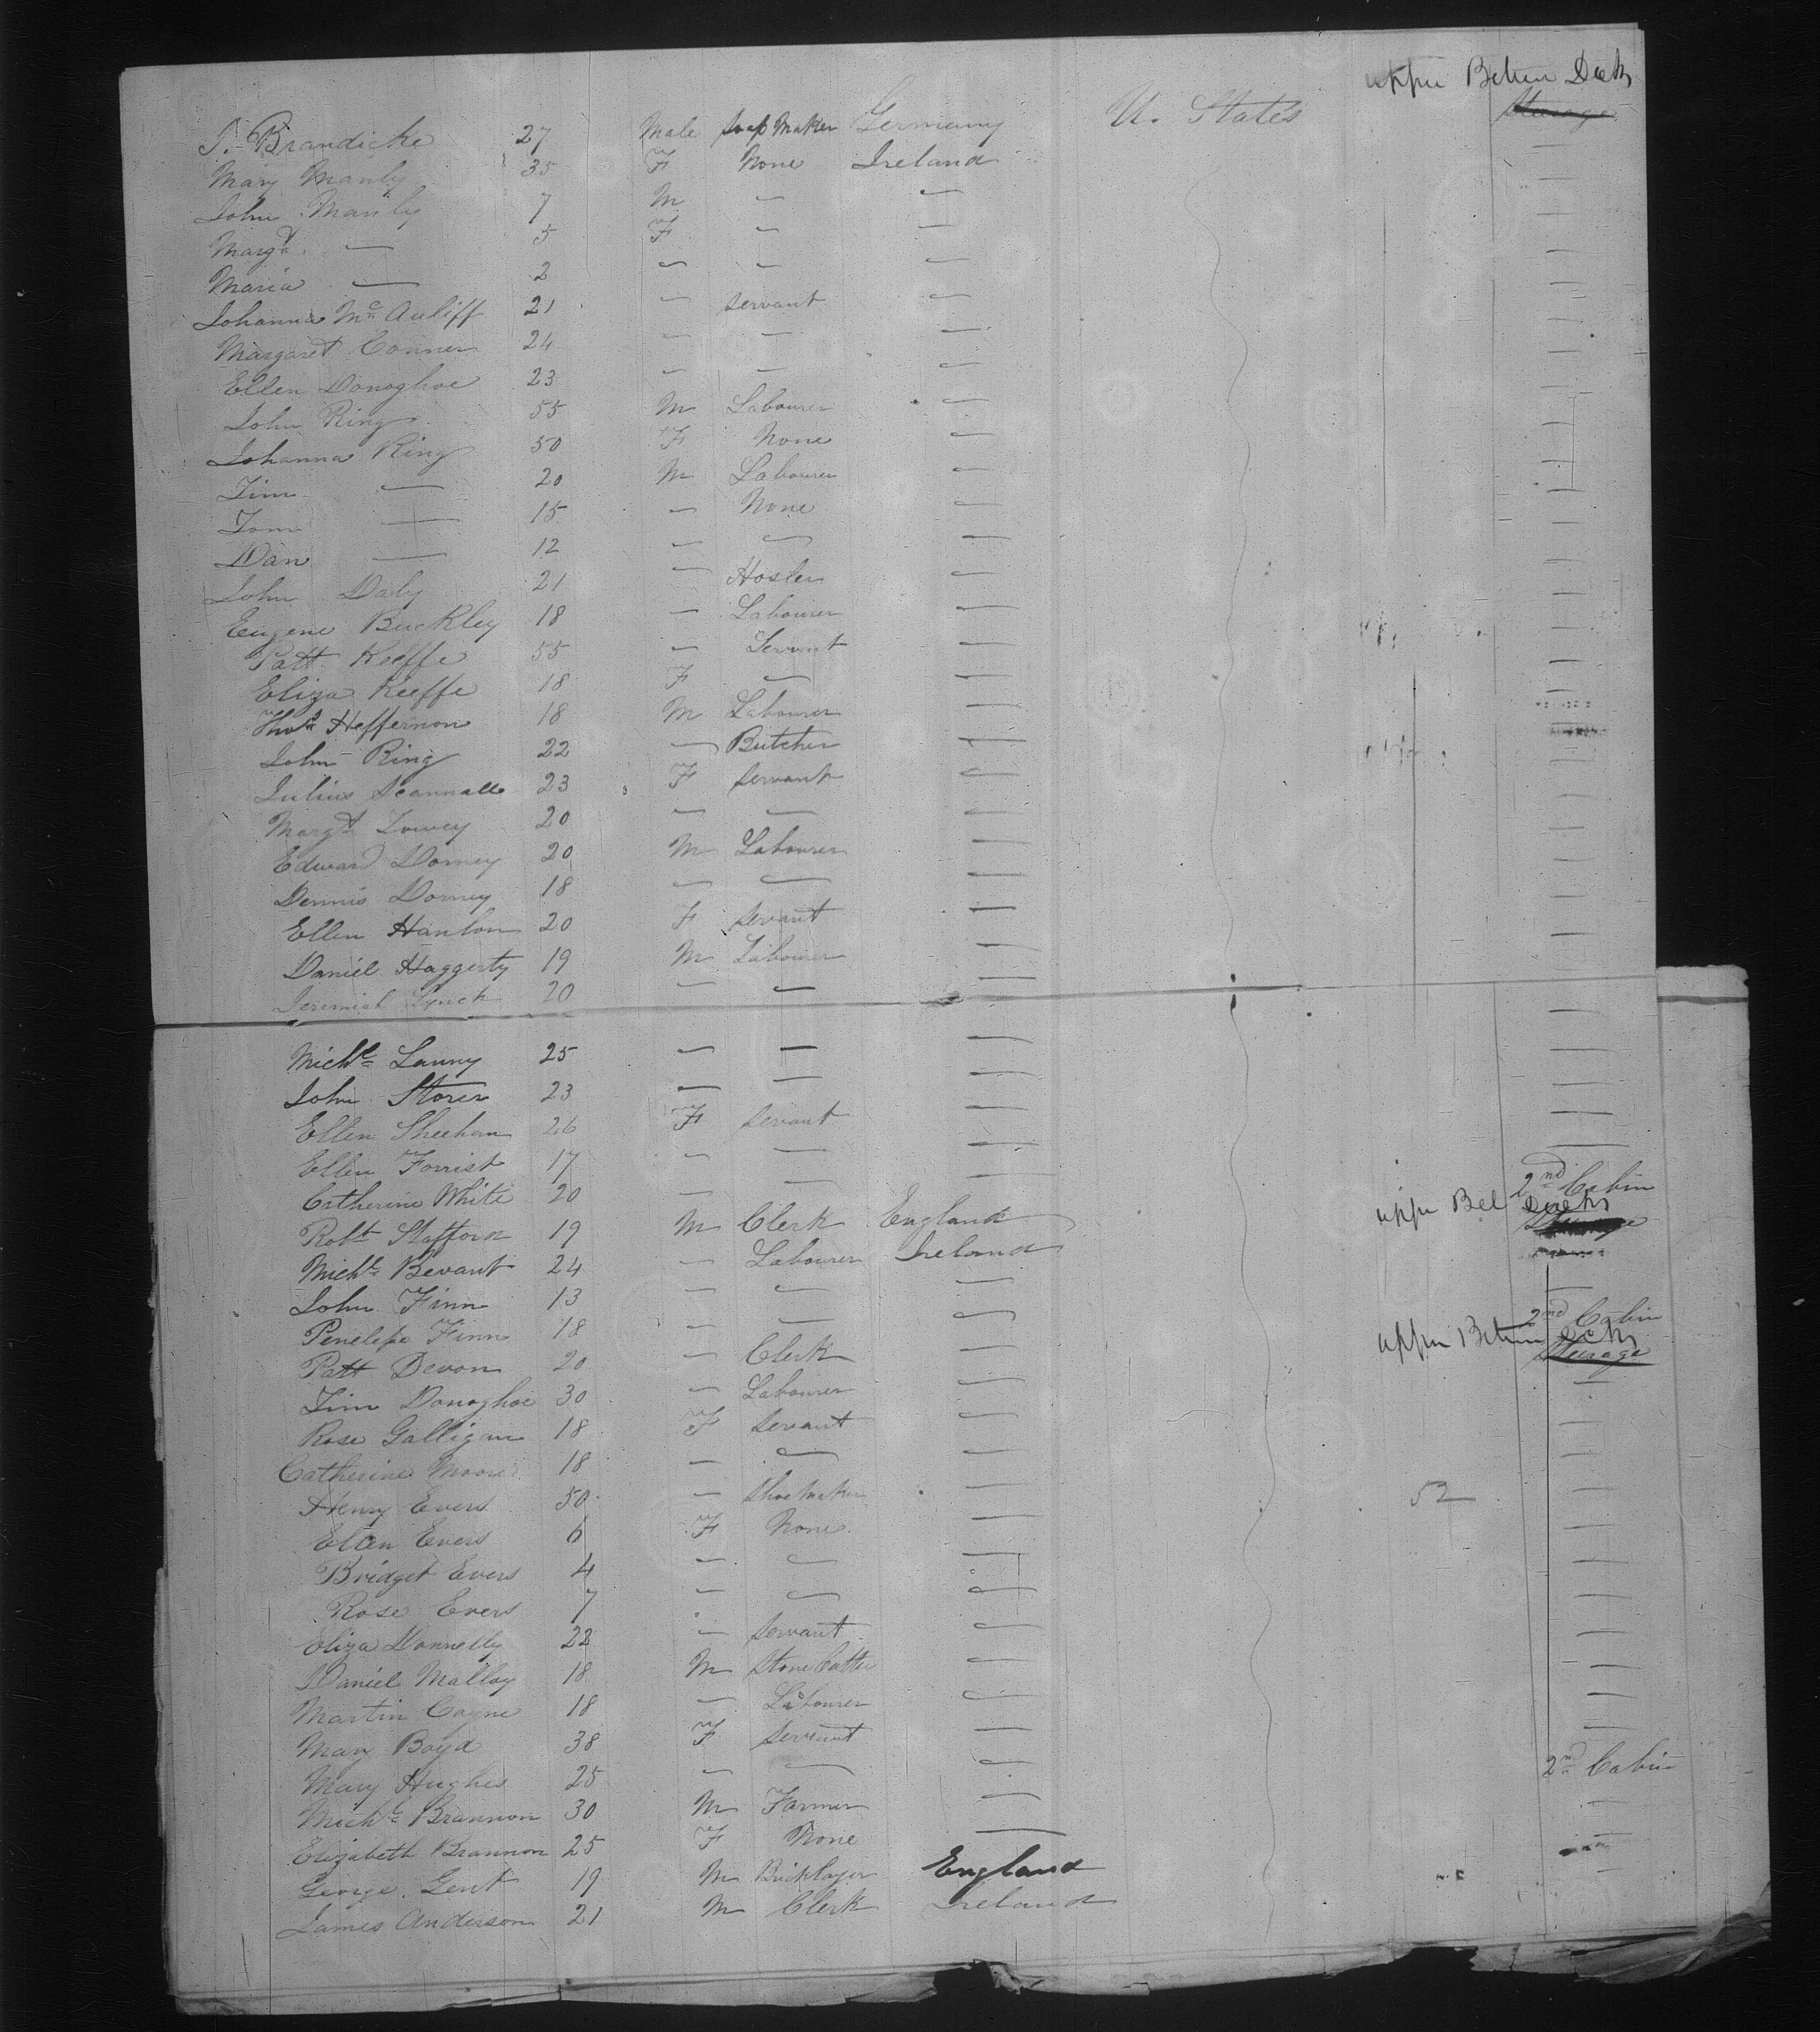 upper Betwn Decks
J. Brandicke 27 Male Soap Maker Germany U. States Steerage
Mary Manly 35 F None Ireland —
John Manly 7 M — — —
Margt — 5 F — — —
Maria — 2 — — — —
Johanna Mc Auliff 21 — Servant — —
Margaret Conner 24 — — — —
Ellen Donoghoe 23 — — — —
John Ring 55 M Labourer — —
Johanna Ring 50 F None — —
Tim — 20 M Labourer — —
Tom — 15 — None — —
Dan — 12 — — — —
John Daly 21 — Hosler — —
Eugene Buckley 18 — Labourer — —
Patt Keeffe 55 — Servant — —
Eliza Keeffe 18 F — — —
Thos Heffernon 18 M Labourer — —
John Ring 22 — Butcher — —
Julius Scannall 23 F Servant — —
Margt 20 — — — —
Edward Dorney 20 M Labourer — —
Dennis Dorney 18 — — — —
Ellen Hanlon 20 F Servant — —
Daniel Haggerty 19 M Labourer — —
Jeremiah Lynch 20 — — — —
Michl 25 — — — —
John Storer 23 — — — —
Ellen Sheehan 26 F Servant — —
Ellen Forrist 17 — — — —
Catherine White 20 — — — 2nd Cabin
Robt Stafford 19 M Clerk England upper Bet Decks Steerage
Michl Bevant 24 — Labourer Ireland —
John Finn 13 — — — —
Penelope Finn 18 — — — 2nd Cabin
Patt Devon 20 — Clerk — upper Betwn Decks Steerage
Tim Donoghoe 30 — Labourer — —
Rose Galligan 18 F Servant — —
Catherine Moore 18 — — — —
Henry Evers 50 — Shoemaker — 52 —
Ellen Evers 6 F None — —
Bridget Evers 4 — — — —
Rose Evers 7 — — — —
Eliza Donnelly 22 — Servant — —
Daniel Malloy 18 M Stone Cutter — —
Martin Coyne 18 — Labourer — —
Mary Boyd 38 F Servant — —
Mary Hughes 25 — — — 2nd Cabin
Michl Brannon 30 M Farmer — —
Elizabeth Brannon 25 F None — —
George Gent 19 M Bricklayer England —
James Anderson 21 M Clerk Ireland